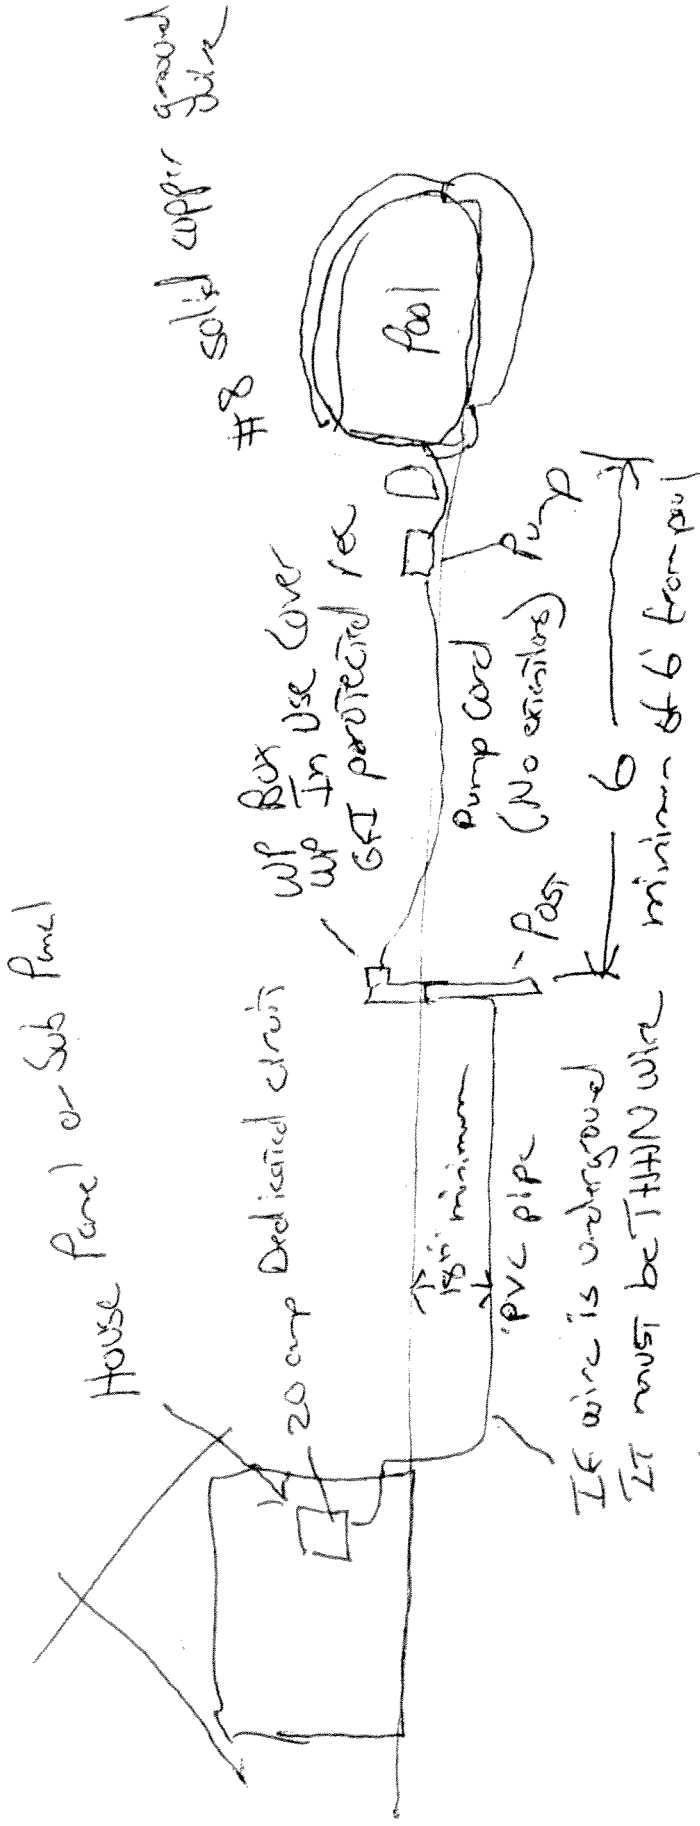 House Panel or Sub Panel
20 amp Dedicated circuit
WP Box
WP In Use Cover
GFI protected rec
#8 solid copper ground
wire
Pool
Pump
Pump Cord
(No extentions)
Post
18" minimum
PVC pipe
6
minimum of 6' from pool
If wire is underground
It must be THHN wire